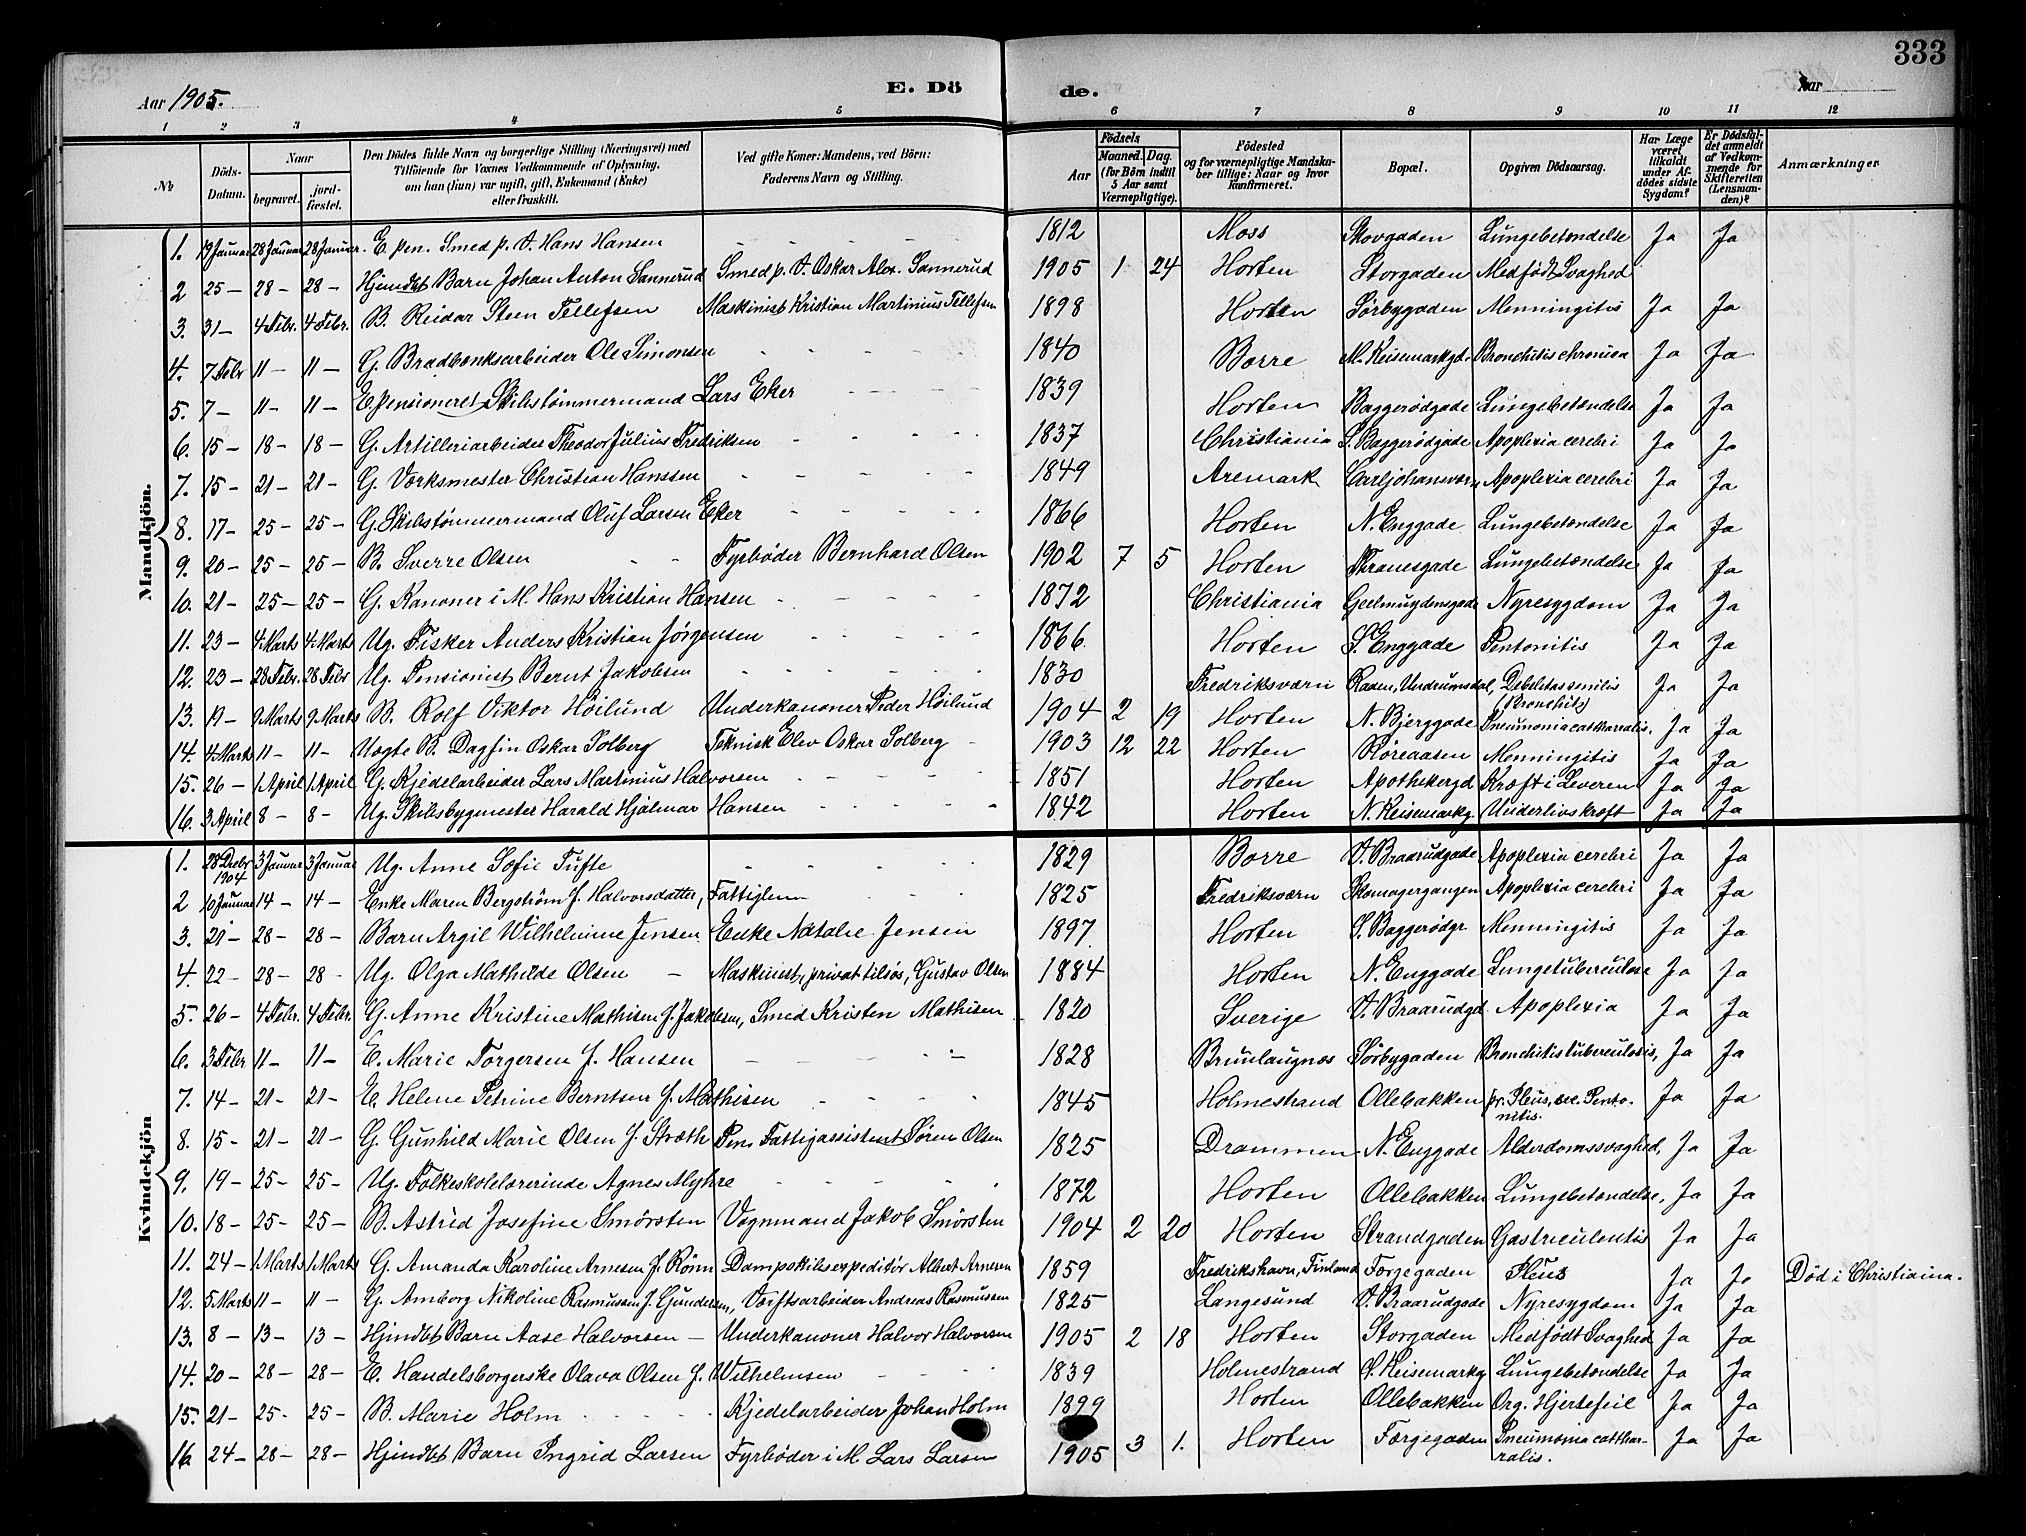 333
Aar 1905. E. Dö de. Aar
1 2 3 4 5 6 7 8 9 10 11 12
No
Döds-Datum.
Naar
begravet.
jord-fæstet.
Den Dödes fulde Navn og borgerlige Stilling (Næringsvei) med Tilföiende for Voxnes Vedkommende af Oplysning, om han (hun) var ugift, gift, Enkemand (Enke) eller fraskilt.
Ved gifte Koner: Mandens, ved Börn: Faderens Navn og Stilling.
Födsels
Aar
Maaned. Dag.
(for Börn indtil 5 Aar samt Værnepligtige).
Födested og for værnepligtige Mandskaber tillige: Naar og hvor konfirmeret.
Bopæl.
Opgiven Dödsaarsag.
Har Læge været tilkaldt under Afdödes sidste Sygdom?
Er Dödsfaldet anmeldt af Vedkommende for Skifteretten (Lensmanden)?
Anmærkninger
Mandkjön.
1. 19 Januar 28 Januar 28 Januar. E. pen. Smed p. V. Hans Hansen - - - 1812 Moss Skovgaden Lungebetændelse Ja Ja
2 25- 28- 28- Hjemdöbt Barn Johan Anton Sannerud Smed p. V. Oskar Alex. Sannerud 1905 1 24 Horten Storgaden Medfödt Svaghed
3. 31- 4 Febr. 4 Febr. B. Reidar Steen Tellefsen Maskinist Kristian Martinius Tellefsen 1898 Horten Sörbygaden Menningitis Ja Ja
4. 7 Febr 11- 11- G. Bradbænksarbeider Ole Simonsen - - - 1840 Borre M. Keisemarkgd. Bronchitis chronica Ja Ja
5. 7- 11- 11- E. pensioneret Skibstömmermand Lars Eker - - - 1839 Horten Baggerödgade Lungebetændelse Ja Ja
6. 15- 18- 18- G. Artilleriarbeider Theodor Julius Fredriksen - - - 1837 Christiania S. Baggerödgade Apoplexia cerebri Ja Ja
7. 15- 21- 21- G. Værksmester Christian Hanssen - - - 1849 Aremark Carljohansværn Apoplexia cerebri Ja Ja
8. 17- 25- 25- G. Skibstömmermand Oluf Larsen Eker - - - 1866 Horten N. Enggade Lungebetændelse Ja Ja
9. 20- 25- 25- B. Sverre Olsen - - Fyrböder Bernhard Olsen 1902 7 5 Horten Thranesgade Lungebetændelse Ja Ja
10. 21- 25- 25- G. Kanoner i M. Hans Kristian Hansen - - - 1872 Christiania Geelmuydensgade Nyresygdom Ja Ja
11. 23- 4 Marts 4 Marts Ug. Fisker Anders Kristian Jörgensen - - - 1866 Horten S. Enggade Peritonitis Ja Ja
12. 23- 28 Febr. 28 Febr Ug. Pensionist Bernt Jakobsen - - - 1830 Fredriksværn Raaen, Undrumsdal, Debelitas senilis (Bronchitis) Ja Ja
13. 19- 9 Marts 9 Marts B. Rolf Viktor Höilund Underkanoner Peder Höilund 1904 2 19 Horten N. Bjerggade Pneumonia catharralis. Ja Ja
14. 4 Marts 11- 11- Uægte B. Dagfin Oskar Solberg Teknisk Elev Oskar Solberg - 1903 12 22 Horten Röreaasen Menningitis Ja Ja
15. 26- 1 April 1 April G. Kjedelarbeider Lars Martinius Halvorsen - - - 1851 Horten Apothekergd Kræft i Leveren Ja Ja
16. 3 April 8- 8- Ug. Skibsbygmester Harald Hjalmar Hansen - - - 1842 Horten N. Keisemarkg. Underlivskræft Ja Ja
Kvindekjön
1. 28 Decbr 1904 3 Januar 3 Januar Ug. Anne Sofie Tufte - - - 1829 Borre V. Braarudgade Apoplexia cerebri Ja Ja
2 10 Januar 14- 14- Enke Maren Bergström f. Halvorsdatter, Fattiglem - - 1825 Fredriksværn Skomagergangen Apoplexia cerebri Ja Ja
3. 21- 28- 28- Barn Argil Wilhelmine Jensen Enke Natalie Jensen 1897 Horten S. Baggerödgr Menningitis Ja Ja
4. 22- 28- 28- Ug. Olga Mathilde Olsen - Maskinist, privat tilsös, Gustav Olsen 1884 Horten N. Enggade Lungetuberculose Ja Ja
5. 26- 4 Febr. 4 Febr. G. Anne Kristine Mathisen f. Jakobsen, Smed Kristen Mathisen 1820 Sverige V. Braarudgd Apoplexia Ja Ja
6. 3 Febr 11- 11- E. Marie Torgersen f. Hansen - - - 1828 Brunlaugnæs Sörbygaden Bronchitis tuberculosis, Ja Ja
7. 14- 21- 21- E. Helene Petrine Berntsen f. Mathisen - - - 1845 Holmestrand Ollebakken pr. Pleus, sec. Peritonitis. Ja Ja
8. 15- 21- 21- G. Gunhild Marie Olsen f. Stræth Pen. Fattigassistent Sören Olsen 1825 Drammen N. Enggade Alderdomssvaghed, Ja Ja
9. 19- 25- 25- Ug. Folkeskolelærerinde Agnes Myhre - - - 1872 Horten Ollebakken Lungebetændelse, Ja Ja
10. 18- 25- 25- B. Astrid Josefine Smörsten Vognmand Jakob Smörsten 1904 2 20 Horten Strandgaden Gastriculentis Ja Ja
11. 24- 1 Marts 1 Marts G. Amanda Karoline Arnesen f. Rönn Dampskibsexpeditör Albert Arnesen 1859 Fredrikshavn, Finland Færgegaden Pleus Ja Ja Död i Christiania.
12. 5 Marts 11- 11- G. Amborg Nikoline Rasmussen f. Gundersen, Værftsarbeider Andreas Rasmussen 1825 Langesund V. Braarudgade Nyresygdom Ja Ja
13. 8- 13- 13- Hjemdöbt Barn Aase Halvorsen - Underkanoner Halvor Halvorsen 1905 2 18 Horten Storgaden Medfödt Svaghed Ja Ja
14. 20- 28- 28- E. Handelsborgerske Olava Olsen f. Wilhelmsen - - 1839 Holmestrand S. Keisemarkg Lungebetændelse Ja Ja
15. 21- 25- 25- B. Marie Holm - - - Kjedelarbeider Johan Holm 1899 Horten Ollebakken Org. Hjertefeil Ja Ja
16 24- 28- 28- Hjemdöbt Barn Ingrid Larsen Fyrböder i M. Lars Larsen 1905 3 1. Horten Færgegaden Pneumonia cattharralis. Ja Ja